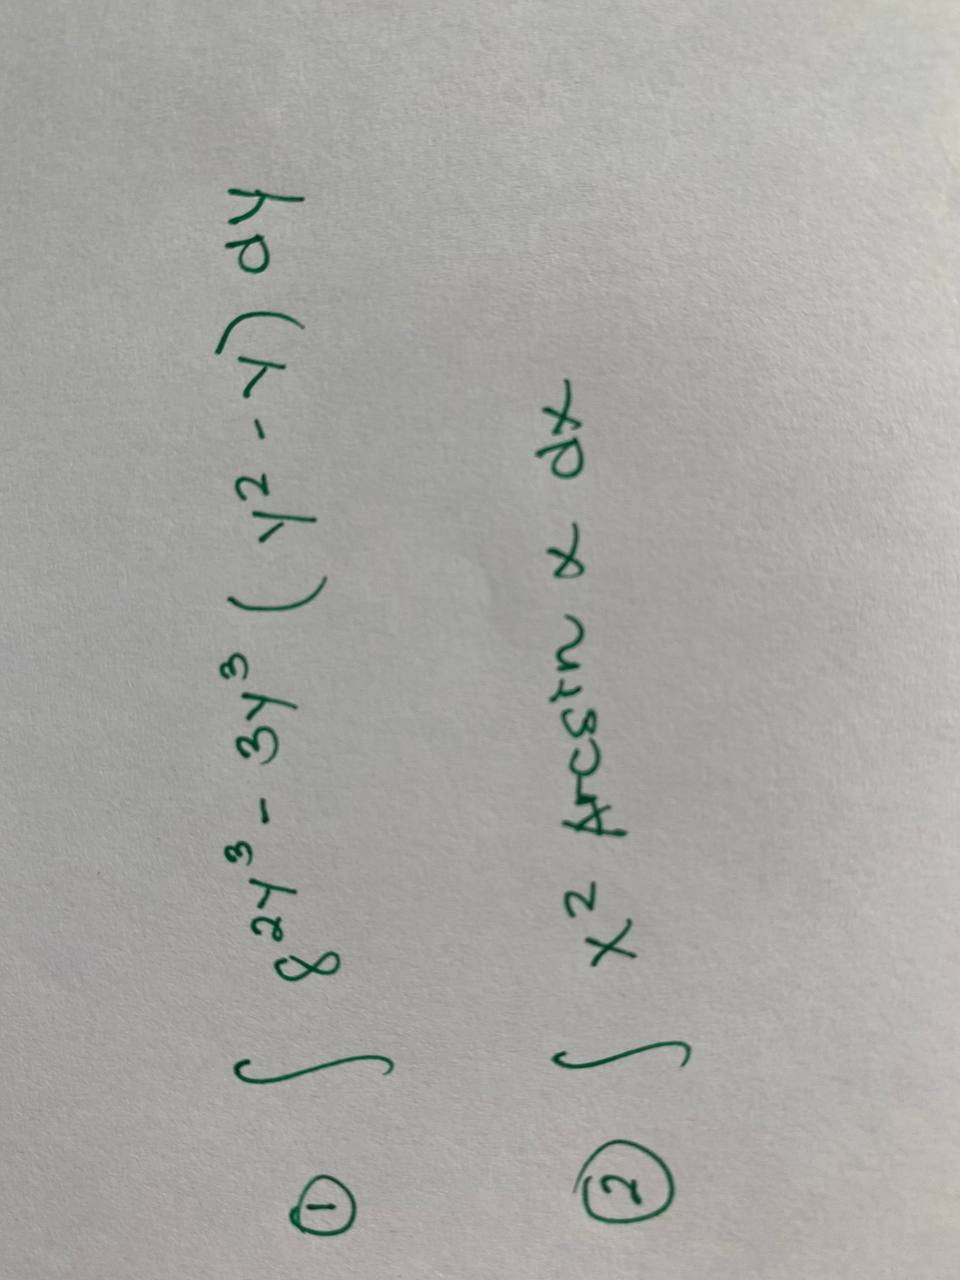 ① ∫ 8^{2y^3} - 3y^3 (y^2 - y) dy
② ∫ x^2 Arcsin x dx